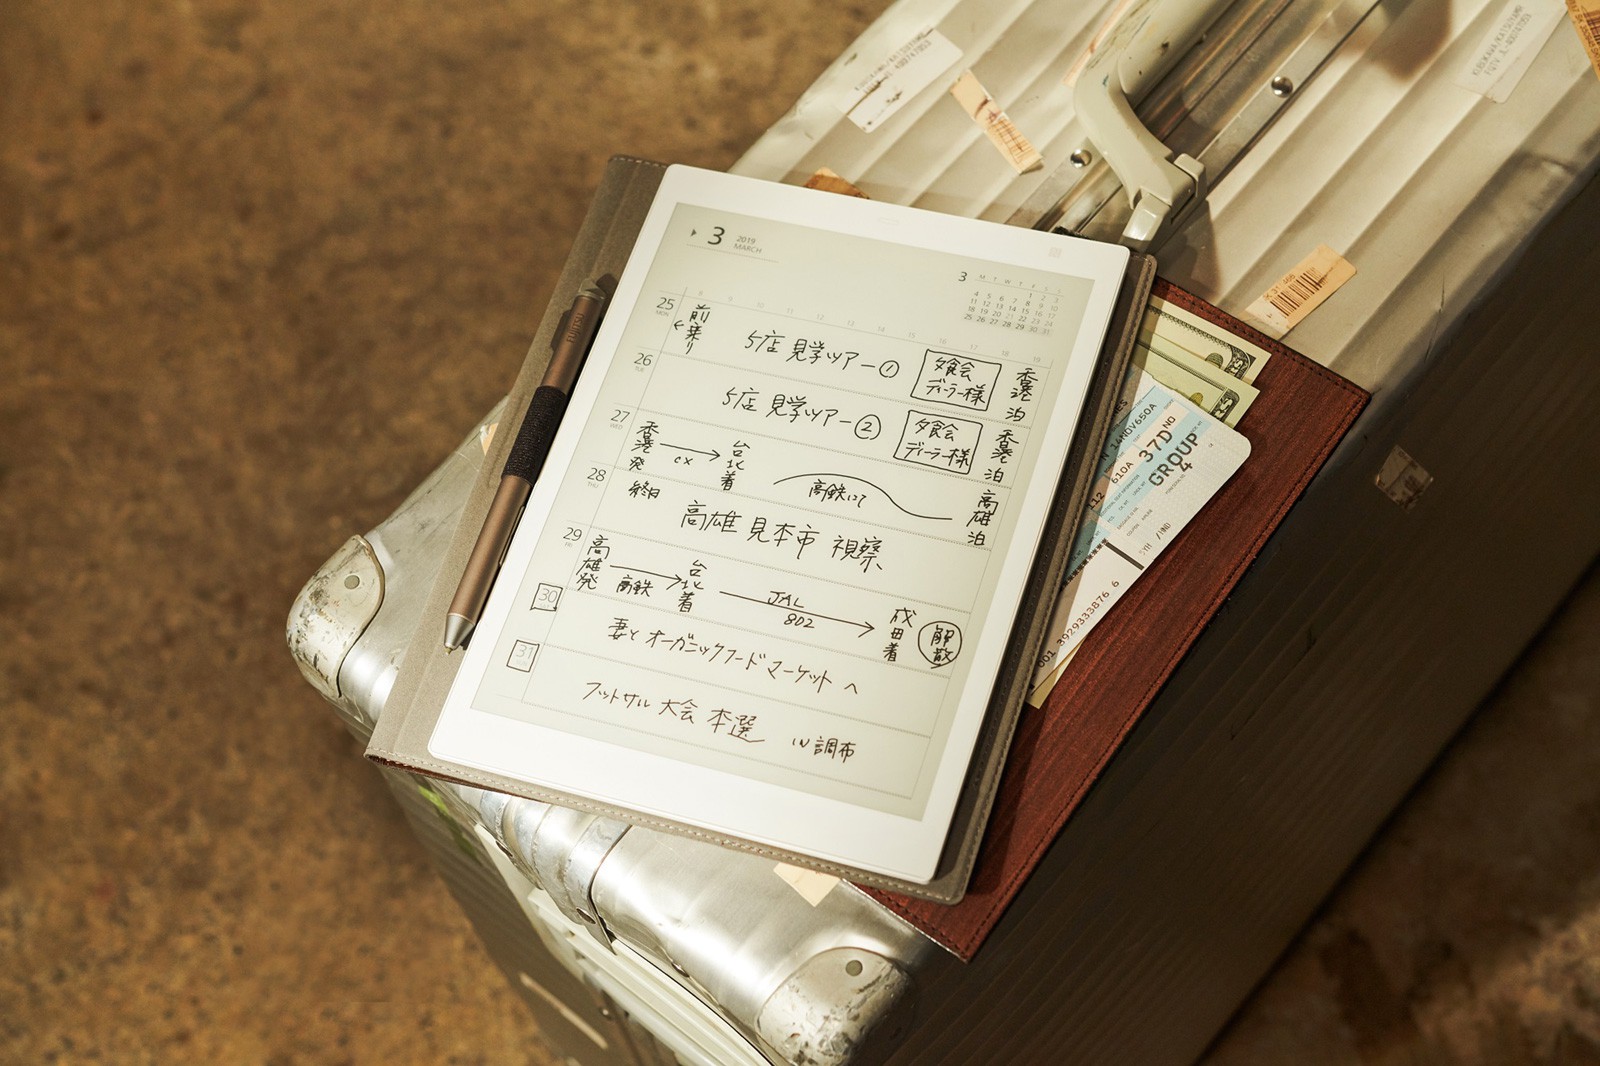 3 2019
MARCH
3 M T W T F S S
1 2 3
4 5 6 7 8 9 10
11 12 13 14 15 16 17
18 19 20 21 22 23 24
25 26 27 28 29 30 31
8 9 10 11 12 13 14 15 16 17 18 19
25
MON
前乗り
5店 見学ツアー①
夕食会
ディーラー様
香港泊
26
TUE
5店 見学ツアー②
夕食会
ディーラー様
香港泊
27
WED
香港発
cx
台北着
高鉄にて
高雄泊
28
THU
終日
高雄 見本市 視察
29
FRI
高雄発
高鉄
台北着
JAL
802
成田着
解散
30
妻と オーガニックフードマーケット へ
31
フットサル 大会 本選 IN 調布
14NOV650A
610A 37D ND
GROUP
4
3929333876 6